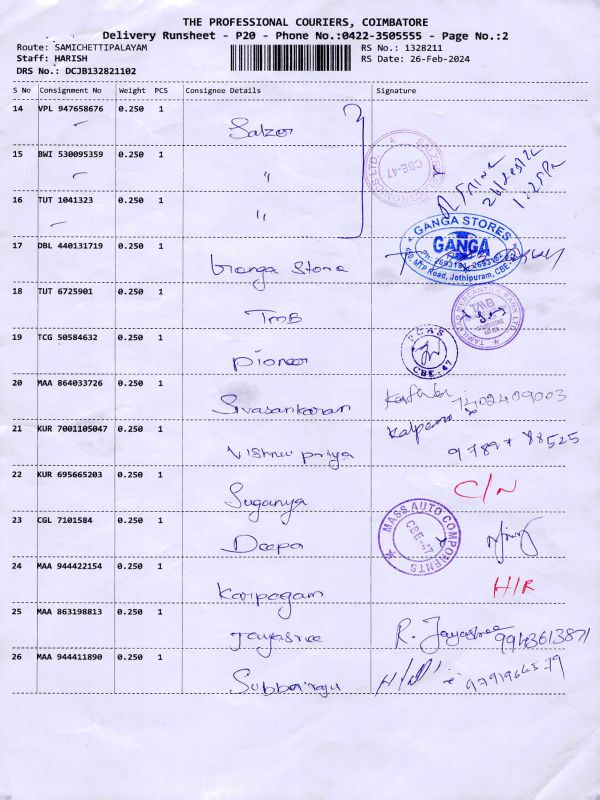 THE PROFESSIONAL COURIERS, COIMBATORE
Delivery Runsheet - P20 - Phone No.:0422-3505555 - Page No.:2
Route: SAMICHETTIPALAYAM RS No.: 1328211
Staff: HARISH RS Date: 26-Feb-2024
DRS No.: DCJB132821102
S No Consignment No Weight PCS Consignee Details Signature
14 VPL 947658676 0.250 1
Salzer
15 BWI 530095359 0.250 1
"
CBE-47
16 TUT 1041323 0.250 1
"
GANGA STORES
17 DBL 440131719 0.250 1
GANGA
Ph: 2693181, 2693182
MTP Road, Jothipuram, CBE
Ganga Store
18 TUT 6725901 0.250 1
TMB
TAMILNAD MERCANTILE BANK LTD
TMB
19 TCG 50584632 0.250 1
Pioneer
CBE-47
20 MAA 864033726 0.250 1
Sivasankaran 7402409003
21 KUR 7001105047 0.250 1
Kalpana
Vishnu priya 97897 88525
22 KUR 695665203 0.250 1
C/N
Suganya
23 CGL 7101584 0.250 1
MASS AUTO COMPONENTS
CBE-47
Deepa
24 MAA 944422154 0.250 1
H/R
Karpagam
25 MAA 863198813 0.250 1
Jayasree R. Jayasree 9943613871
26 MAA 944411890 0.250 1
Subbaraju